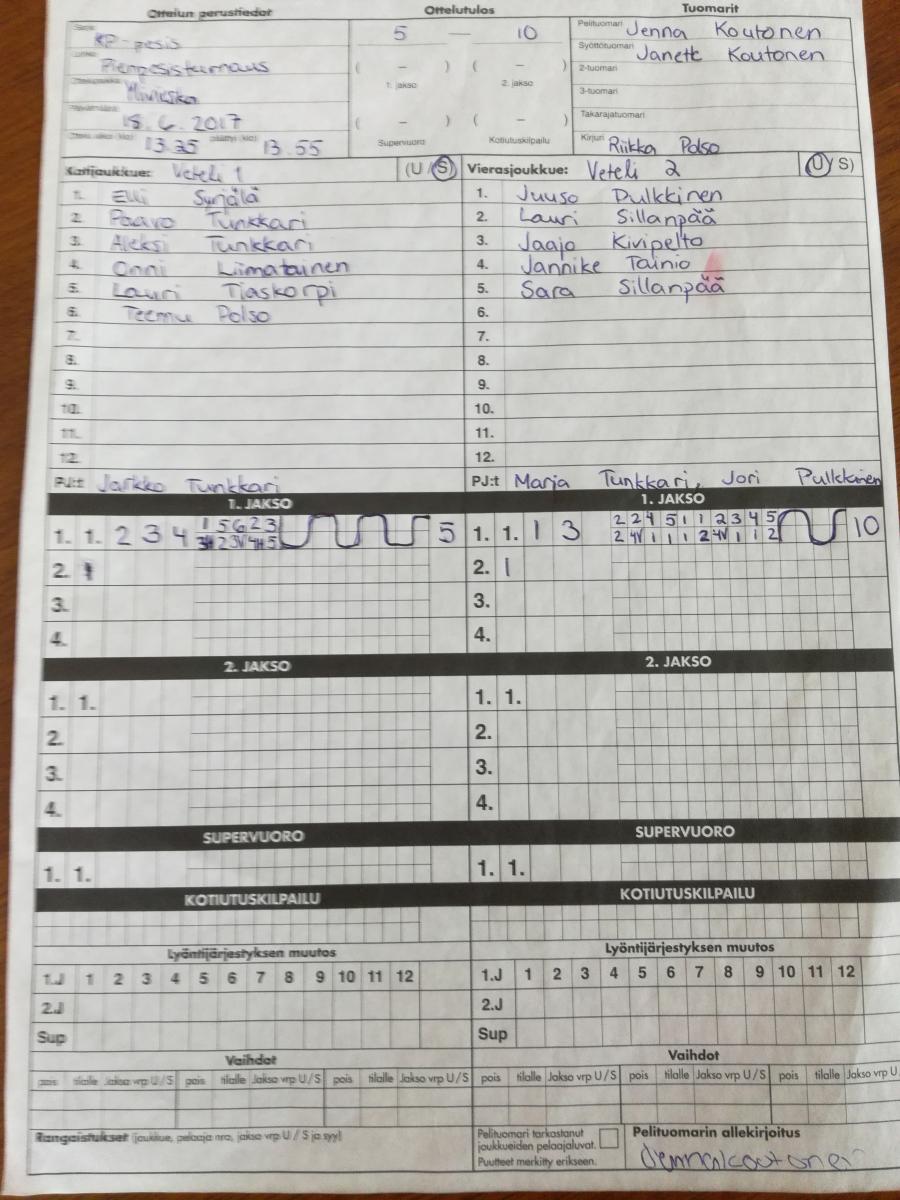 Ottelun perustiedot Ottelutulos Tuomarit
Sarja KP-pesis 5 — 10 Pelituomari Jenna Koutonen
Pienpesisturnaus ( – ) ( – ) Syöttötuomari Janett Koutonen
1. jakso 2. jakso 2-tuomari
Ylivieska 3-tuomari
18.6.2017 ( – ) ( – ) Takarajatuomari
13.35 13.55 Supervuoro Kotiutuskilpailu Kirjuri Riikka Polso
Kotijoukkue: Veteli 1 (U/S) Vierasjoukkue: Veteli 2 (U/S)
1. Elli Syrjälä 1. Juuso Pulkkinen
2. Paavo Tunkkari 2. Lauri Sillanpää
3. Aleksi Tunkkari 3. Jaajo Kivipelto
4. Onni Liimatainen 4. Jannike Tainio
5. Lauri Tiaskorpi 5. Sara Sillanpää
6. Teemu Polso 6.
7. 7.
8. 8.
9. 9.
10. 10.
11. 11.
12. 12.
PJ:t Jarkko Tunkkari PJ:t Marja Tunkkari, Jori Pulkkinen
1. JAKSO 1. JAKSO
1 5 6 2 3 2 2 4 5 1 1 2 3 4 5
1. 1. 2 3 4 5 1. 1. 1 3 2 4V 1 1 1 2 4V 1 1 2 10
2. 2. 1
3. 3.
4. 4.
2. JAKSO 2. JAKSO
1. 1. 1. 1.
2. 2.
3. 3.
4. 4.
SUPERVUORO SUPERVUORO
1. 1. 1. 1.
KOTIUTUSKILPAILU KOTIUTUSKILPAILU
Lyöntijärjestyksen muutos Lyöntijärjestyksen muutos
1.J 1 2 3 4 5 6 7 8 9 10 11 12 1.J 1 2 3 4 5 6 7 8 9 10 11 12
2.J 2.J
Sup Sup
Vaihdot Vaihdot
pois tilalle Jakso vrp U/S pois tilalle Jakso vrp U/S pois tilalle Jakso vrp U/S pois tilalle Jakso vrp U/S pois tilalle Jakso vrp U/S pois tilalle Jakso vrp U
Rangaistukset (joukkue, pelaaja nro, jakso vrp U / S ja syy) Pelituomari tarkastanut Pelituomarin allekirjoitus
joukkueiden pelaajaluvat.
Puutteet merkitty erikseen. Jenna Koutonen